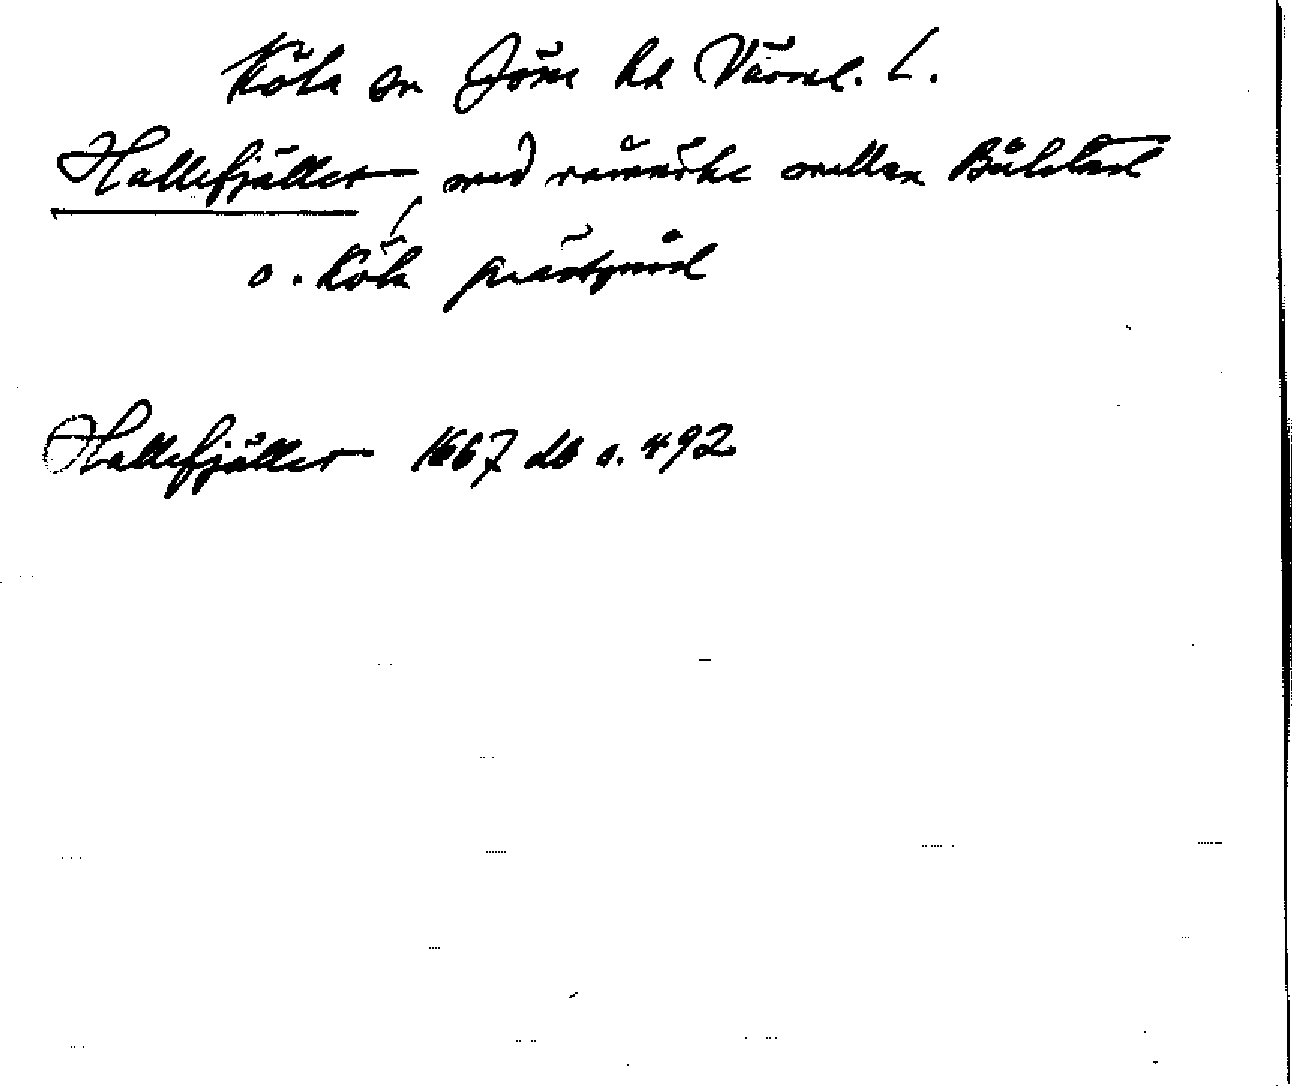 Köla sn Jöse hd Värml. L.
Hallefjället, med råmärke mellan Bålstad
o. Köla prästgård
Hallefjället 1667 db s. 492